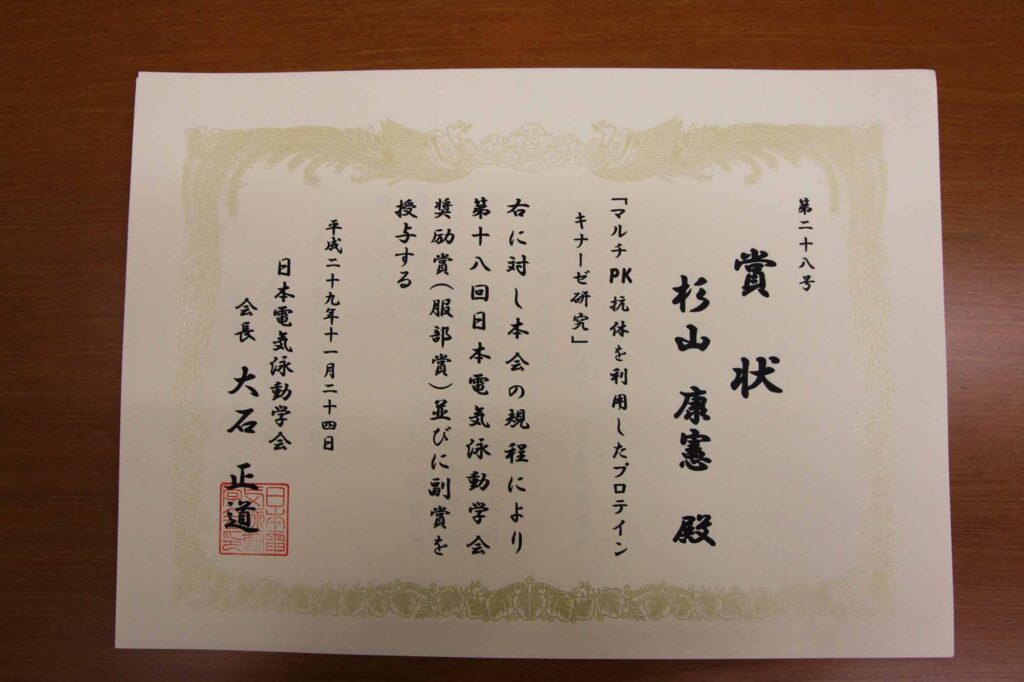 第二十八号
賞状
杉山 康憲 殿
「マルチPK抗体を利用したプロテイン
キナーゼ研究」
右に対し本会の規程により
第十八回日本電気泳動学会
奨励賞(服部賞)並びに副賞を
授与する
平成二十九年十一月二十四日
日本電気泳動学会
会長 大石 正道